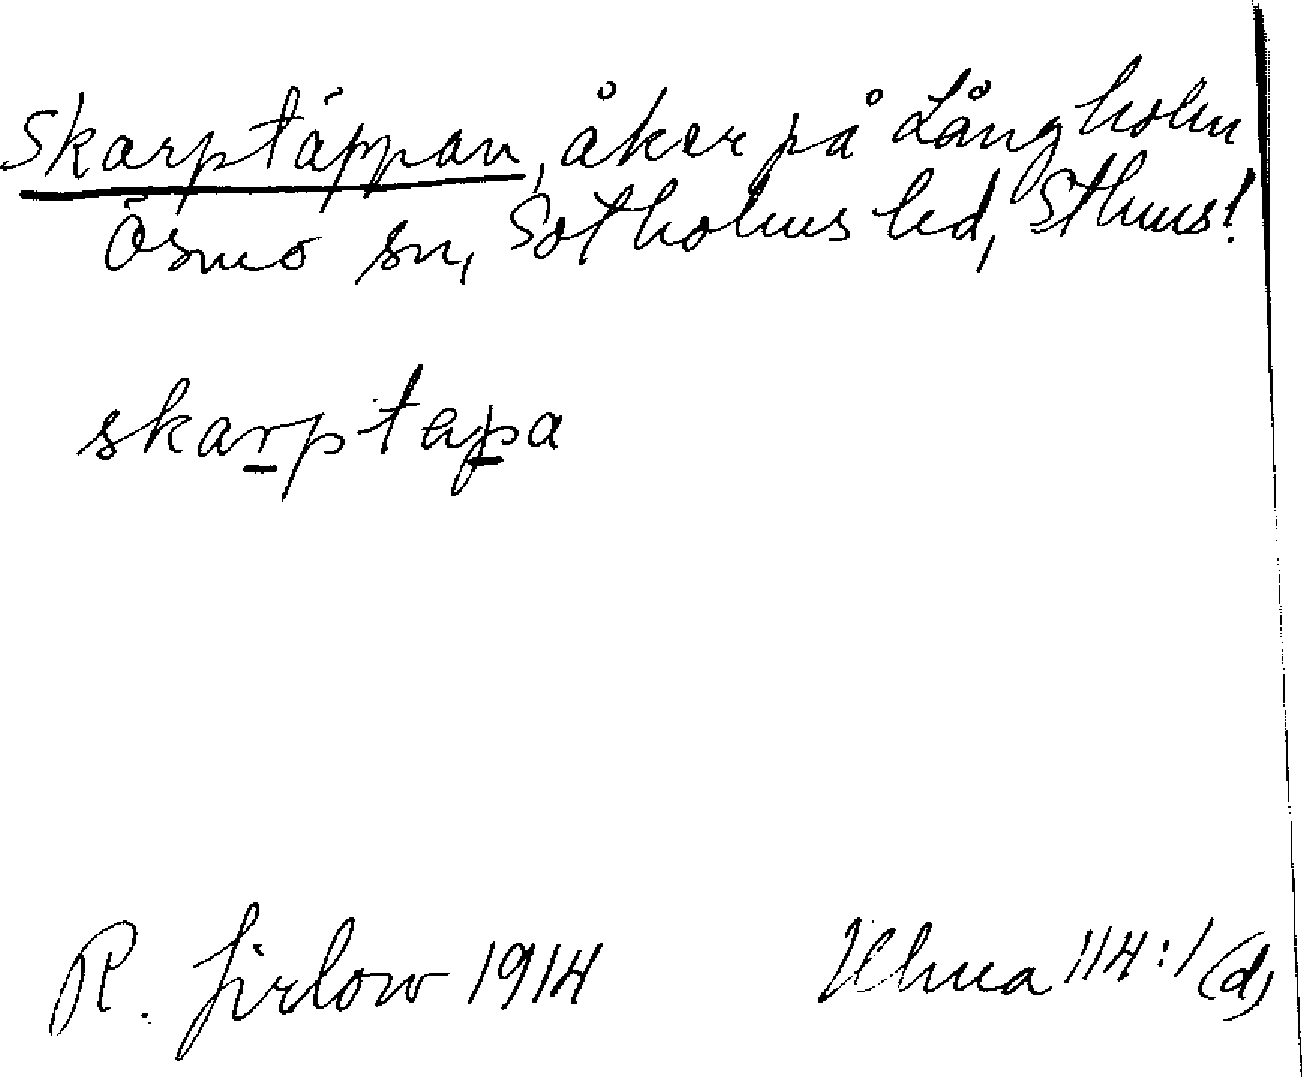 Skarptäppan, åker på Långholm
Ösmo sn, Sotholms hd, Sthms l
skarptepa
R. Jirlow 1914 Ulma 114:1 (d)